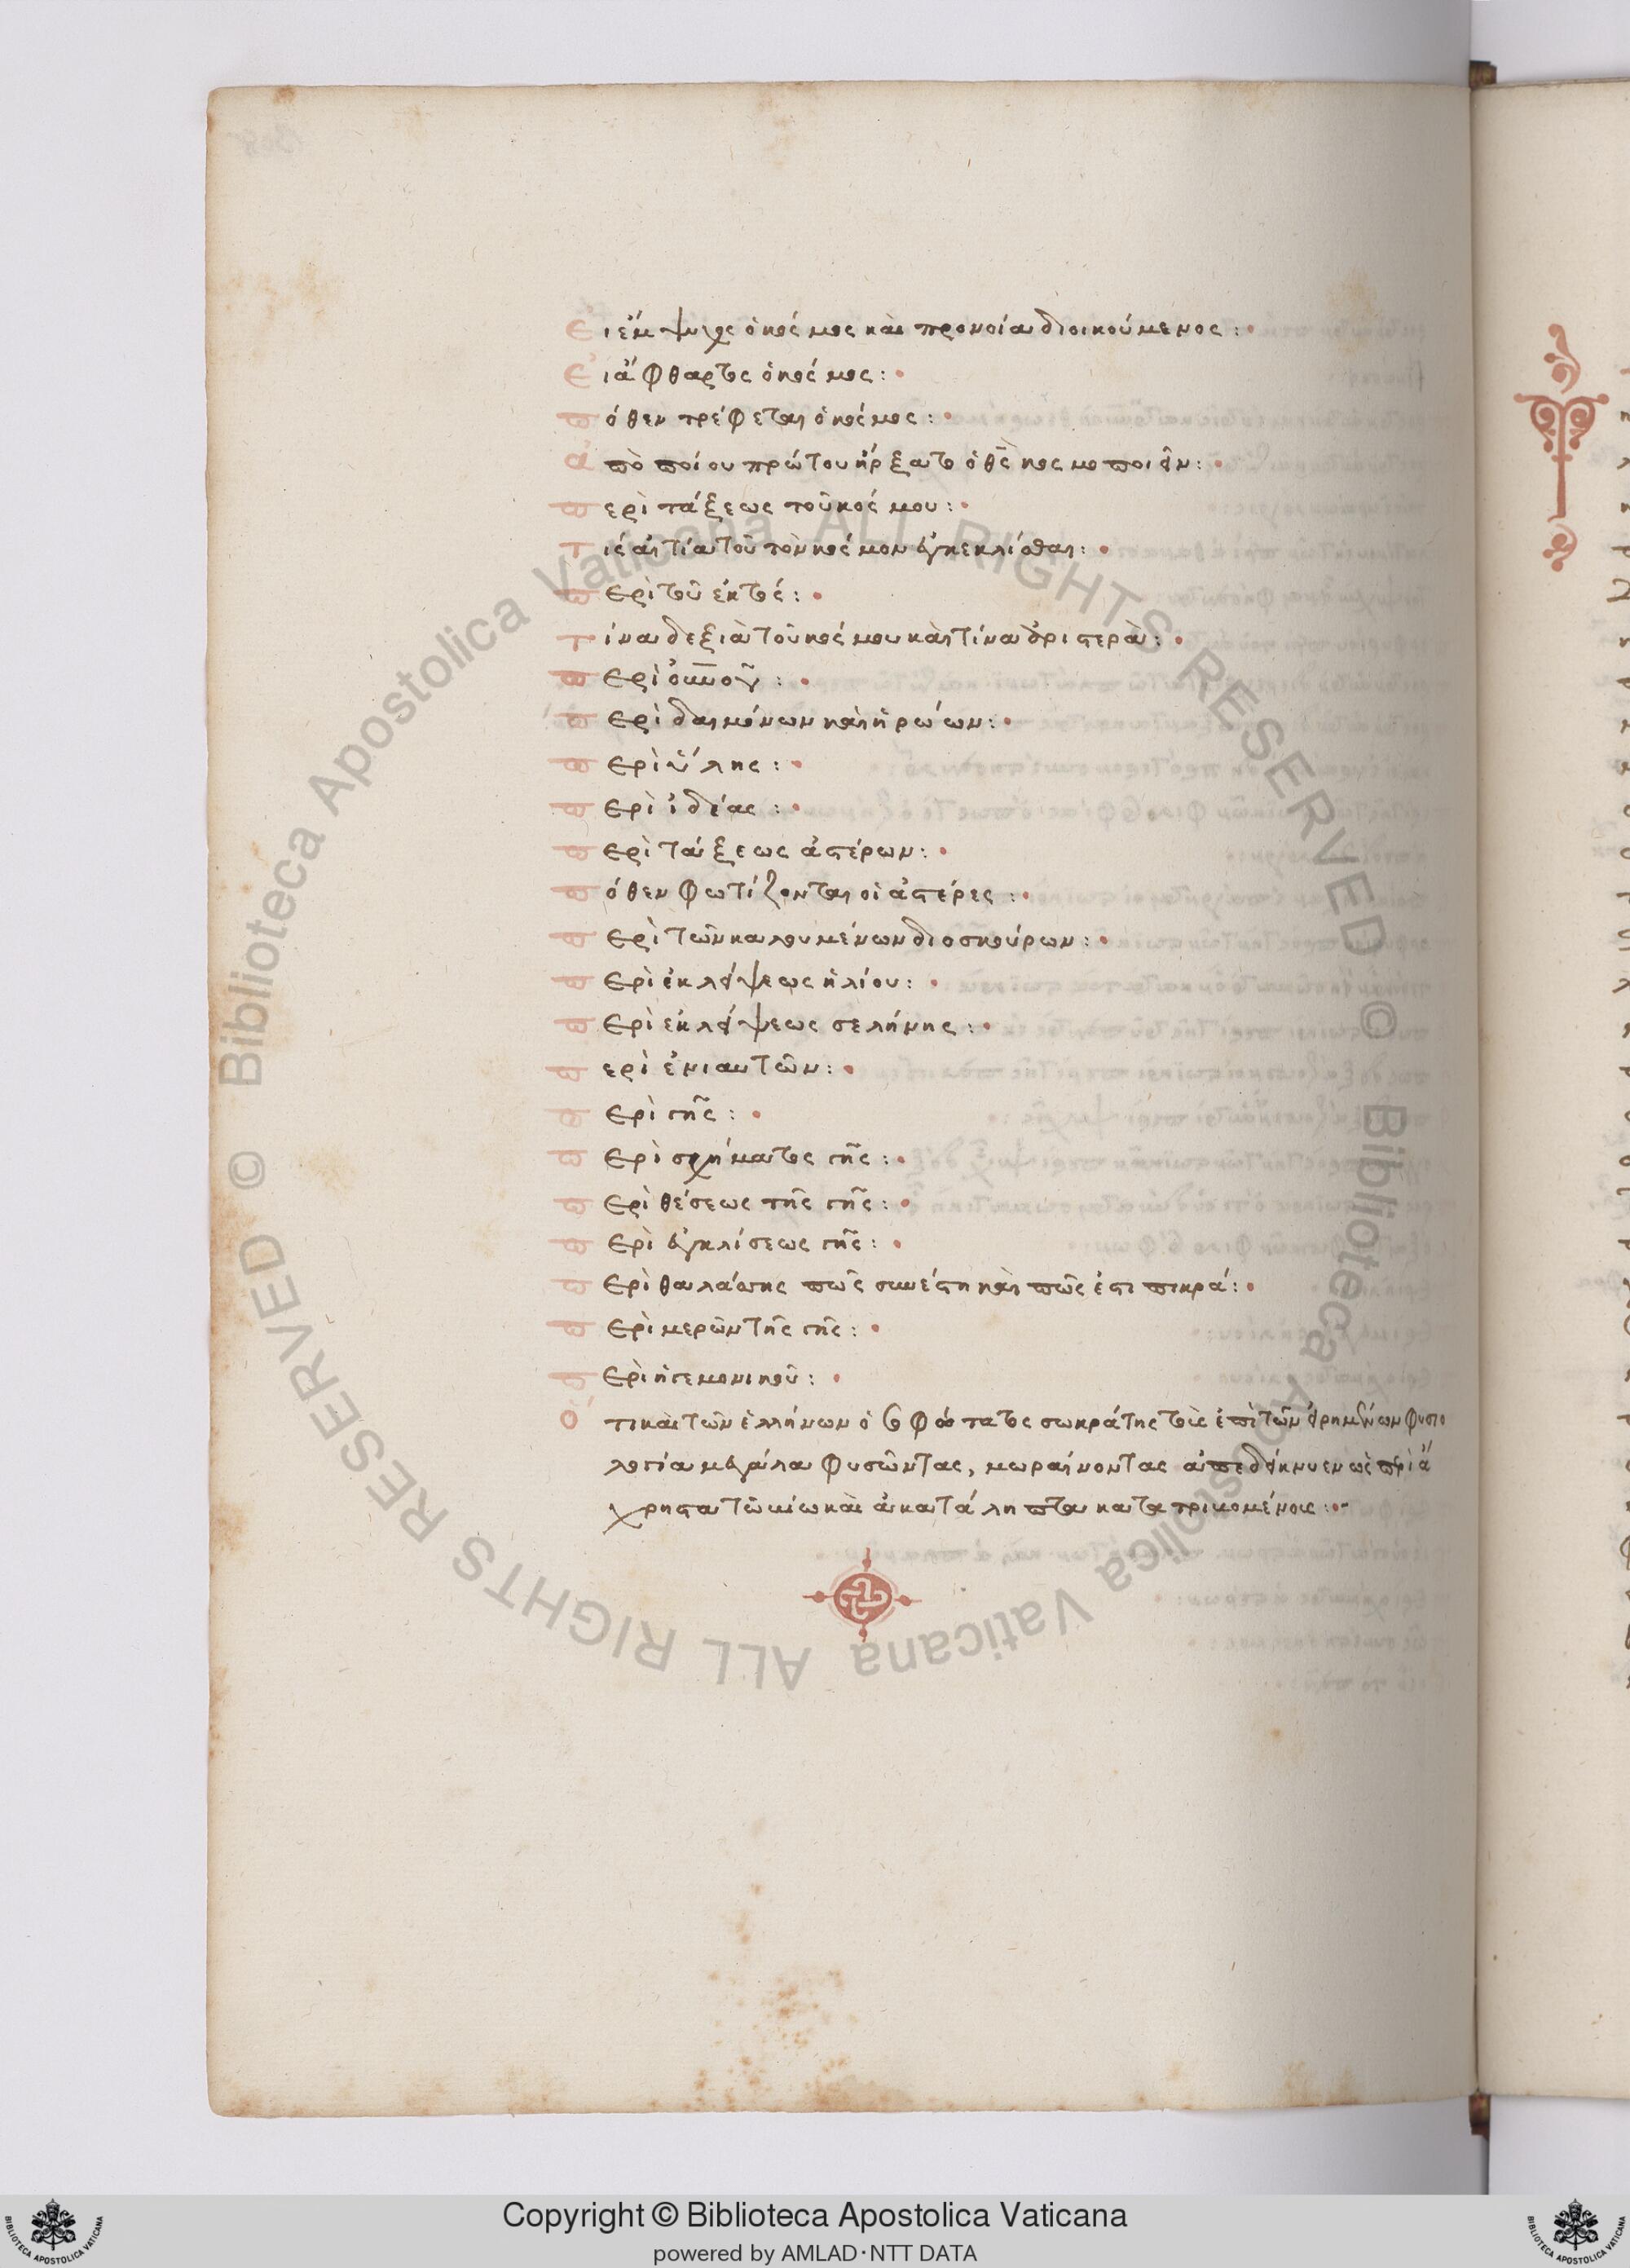 Εἰ ἔμψυχος ὁ κόσμος καὶ προνοία διοικούμενος :·
Εἰ ἄφθαρτος ὁ κόσμος :·
πόθεν τρέφεται ὁ κόσμος :·
ἀπὸ ποίου πρώτου ἤρξατο ὁ θς κοσμοποιεῖν :·
περὶ τάξεως τοῦ κόσμου :·
τίς αἰτία τοῦ τὸν κόσμον ἐγκεκλίσθαι :·
περὶ τοῦ ἐκτός :·
τίνα δεξιὰ τοῦ κόσμου καὶ τίνα ἀριστερὰ :·
περὶ οὐνοῦ :·
περὶ δαιμόνων καὶ ἡρώων :·
περὶ ὕλης :·
περὶ ἰδέας :·
περὶ τάξεως ἀστέρων :·
πόθεν φωτίζονται οἱ ἀστέρες :·
περὶ τῶν καλουμένων διοσκούρων :·
περὶ ἐκλείψεως ἡλίου :·
περὶ ἐκλείψεως σελήνης :·
περὶ ἐνιαυτῶν :·
περὶ γῆς :·
περὶ σχήματος γῆς :·
περὶ θέσεως τῆς γῆς :·
περὶ ἐγκλίσεως γῆς :·
περὶ θαλάσσης πῶς συνέστη καὶ πῶς ἐστι πικρά :·
περὶ μερῶν τῆς γῆς :·
περὶ ἡγεμονικοῦ :·
ὅτι καὶ τῶν ἑλλήνων ὁ σοφώτατος σωκράτης τοὺς ἐπὶ τῶν εἰρημένων φυσιο
λογία μεγάλα φυσῶντας, μωραίνοντας ἀπεδείκνυεν ὡς περὶ ἄ
χρηστα τῶ βίω καὶ ἀκατάληπτα κατατριβομένους :·
Copyright © Biblioteca Apostolica Vaticana
powered by AMLAD·NTT DATA